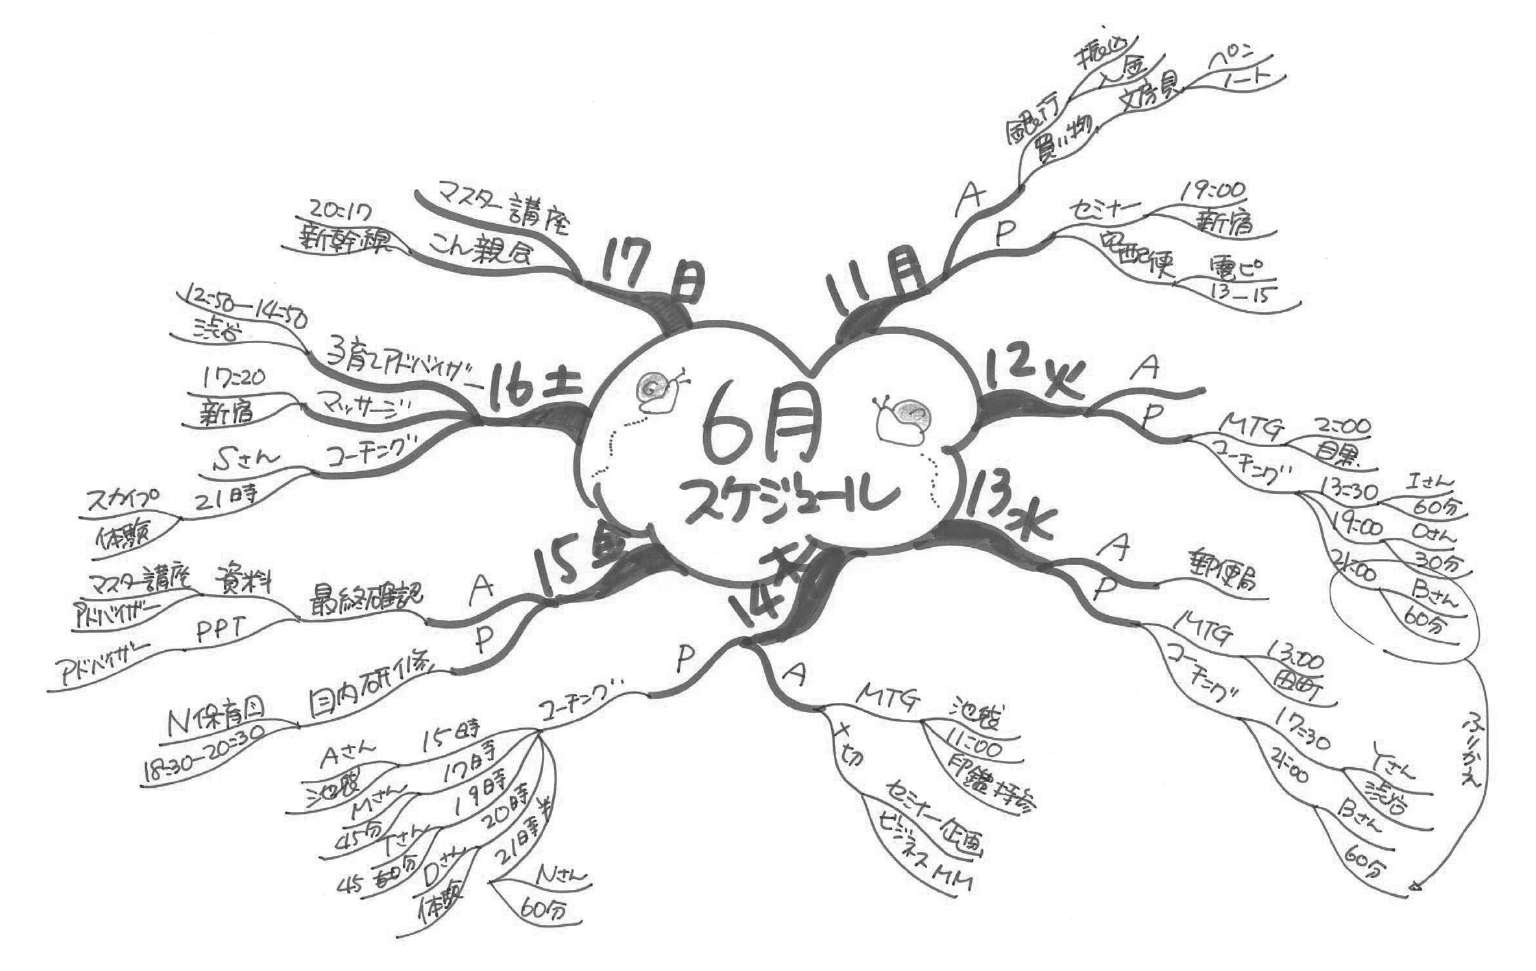 6月
スケジュール
11月
A
銀行
振込
入金
買い物
文房具
ペン
ノート
P
セミナー
19:00
新宿
宅配便
電ピ
13-15
12火
A
P
MTG
2:00
目黒
コーチング
13:30
Iさん
60分
19:00
Oさん
30分
21:00
Bさん
60分
ふりかえ
13水
A
郵便局
P
MTG
13:00
田町
コーチング
17:30
Yさん
渋谷
21:00
Bさん
60分
14木
A
MTG
池袋
11:00
印鑑持参
〆切
セミナー企画
ビジネスMM
P
コーチング
15時
Aさん
池袋
17時
Mさん
45分
19時
Tさん
45分
20時
Dさん
体験
21時半
Nさん
60分
15金
A
最終確認
資料
マスター講座
アドバイザー
PPT
アドバイザー
P
園内研修
N保育園
18:30-20:30
16土
子育てアドバイザー
12:50-14:50
渋谷
マッサージ
17:20
新宿
コーチング
Sさん
21時
スカイプ
体験
17日
マスター講座
こん親会
20:17
新幹線